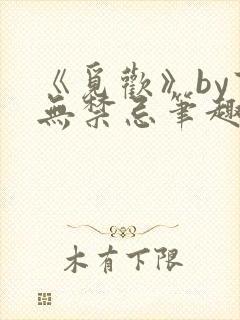 《覓歡》by
無禁忌筆趣
木有下限